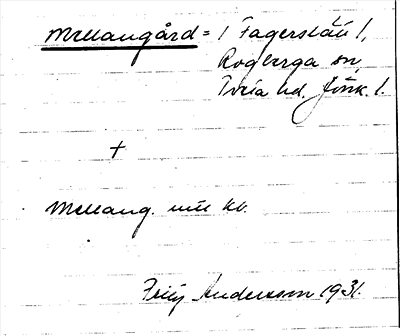 Mellangård = i Fagerslätt l,
Rogberga sn,
Tveta hd. Jönk. l.
+
Mellang. utt kb.
Frey Andersson 1931.